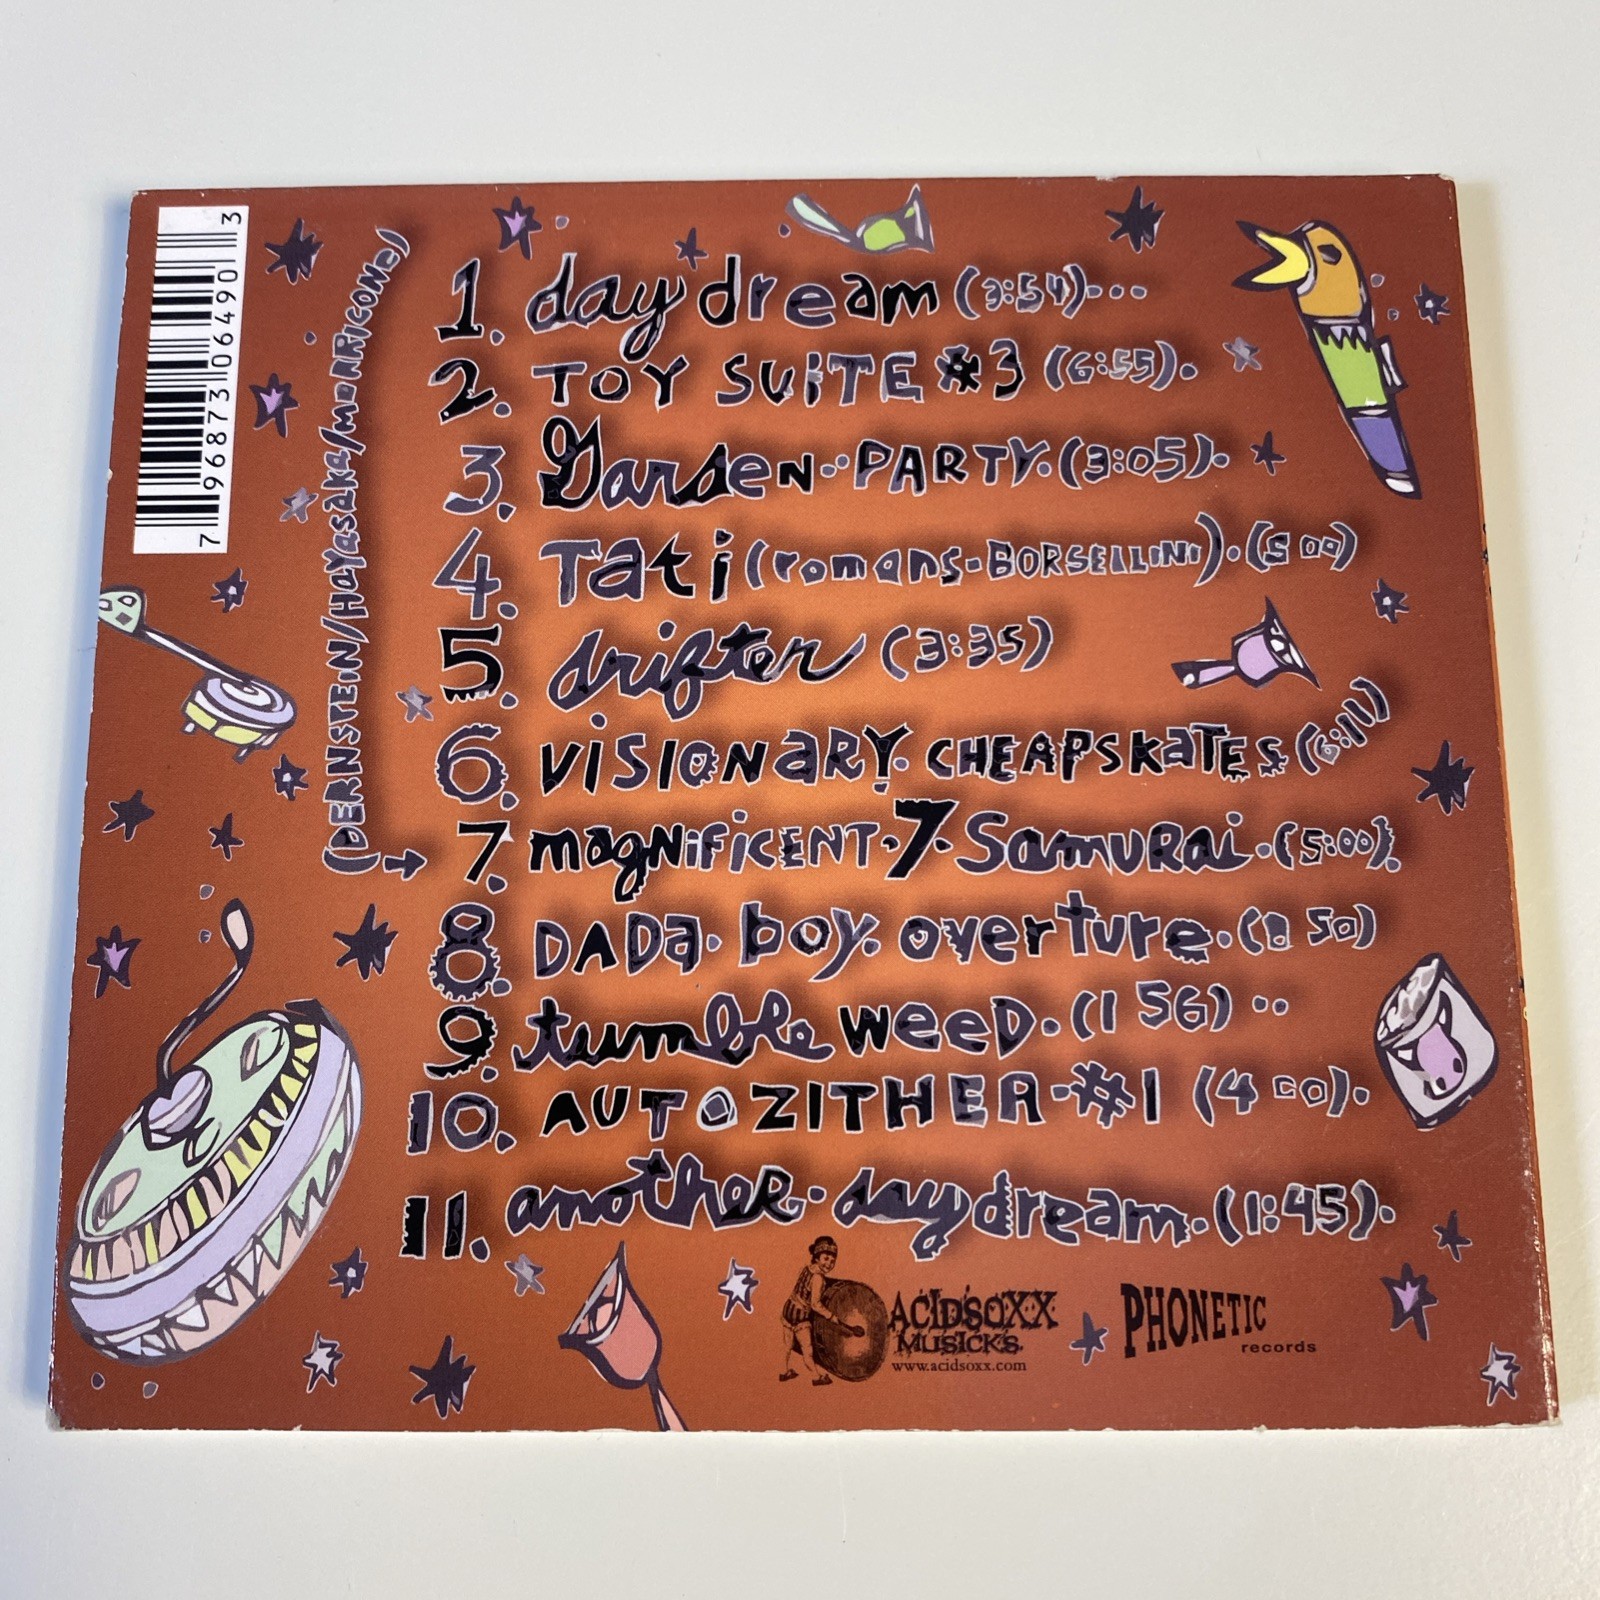 7 96873 06490 3
(BERNSTEIN/HAYASAKA/MORRICONE)
1. daydream (3:54)...
2. TOY SUITE #3 (6:55).
3. Garden PARTY. (3:05).
4. Tati (romans-BORSELLINI). (5 00)
5. drifter (3:35)
6. VISIONARY CHEAPSKATES (6:11)
7. magNiFicENT 7 SamURai. (5:00).
8. DADa. boy. overture. (50)
9. tumble weeD. (1 56) ..
10. AUTOZITHER #1 (4 00).
11. another daydream. (1:45).
ACIDSOXX
MUSICKS
www.acidsoxx.com
PHONETIC
records